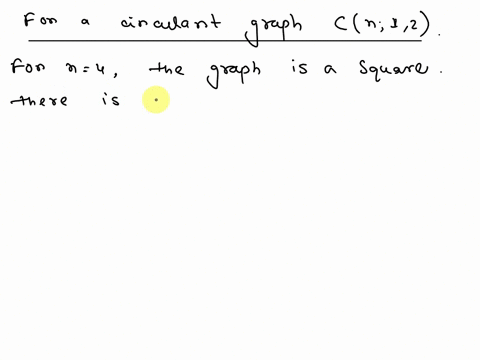 For a circulant graph C(n; 1, 2).
For n=4, the graph is a square.
there is